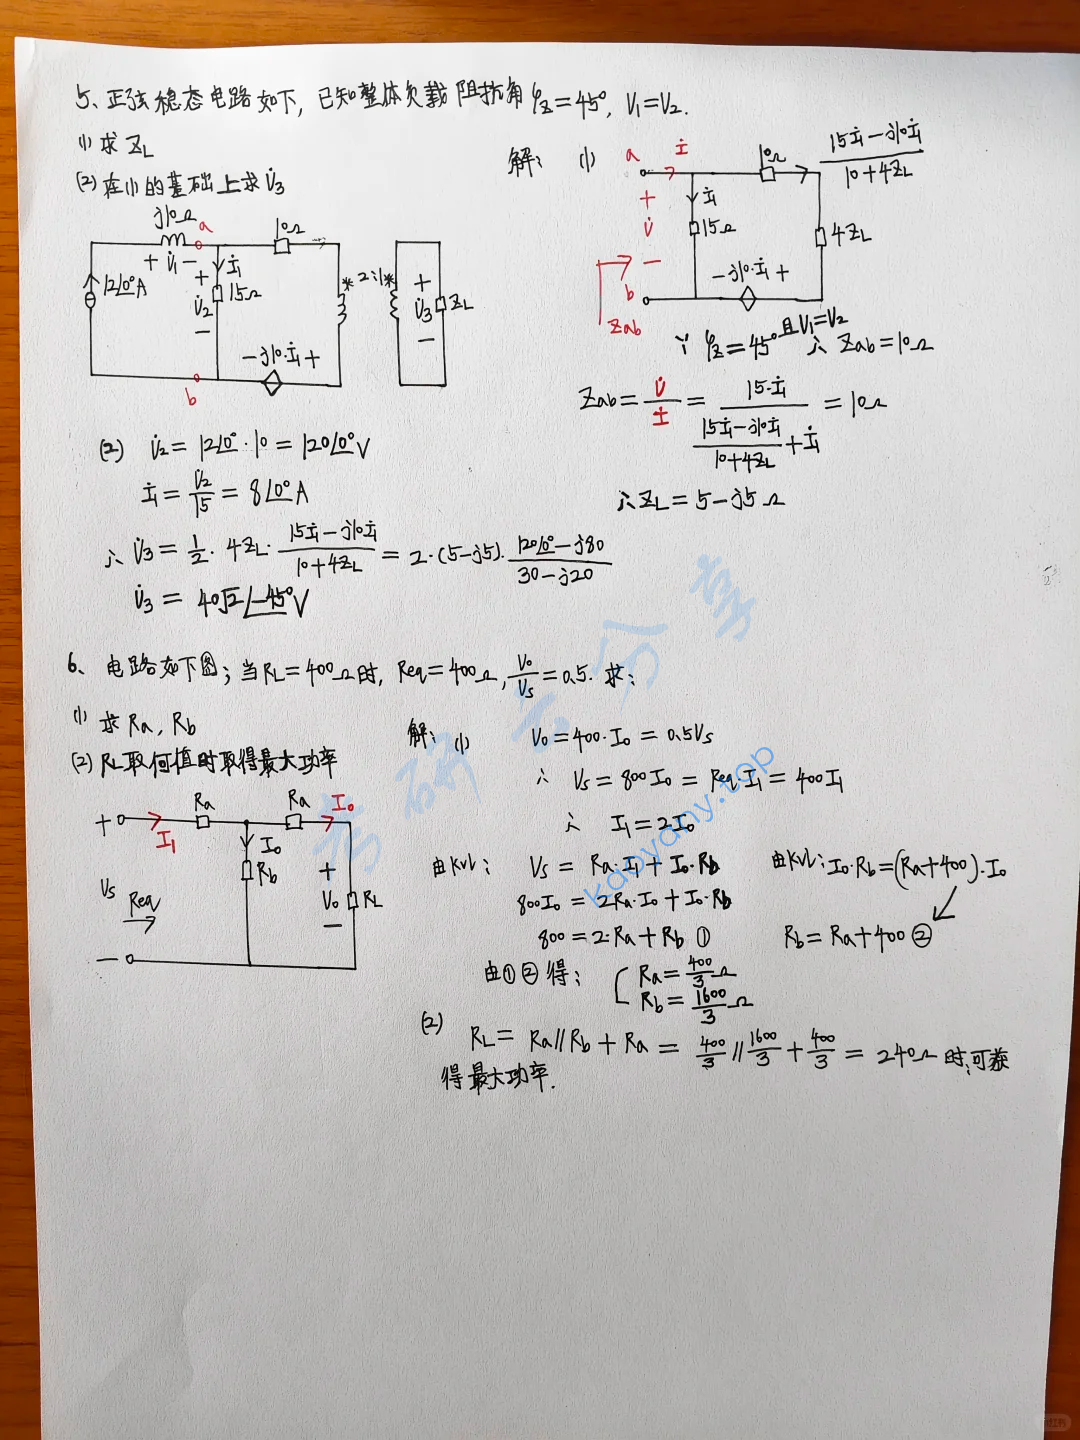 5、正弦稳态电路如下，已知整体负载阻抗角φz=45°，V₁=V₂.
(1) 求 ZL
(2) 在(1)的基础上求 V̇₃
j10Ω
a
10Ω
+ V̇₁ −
İ₁
12∠0°A
+
V̇₂
−
15Ω
* 2:1 *
+
V̇₃
−
ZL
− j10·İ₁ +
b
解： (1)
a
İ
10Ω
(15İ₁ − j10İ₁)/(10+4ZL)
+
V̇
−
İ₁
15Ω
4ZL
− j10·İ₁ +
b
Zab
∵ φz=45° 且V₁=V₂ ∴ Zab=10Ω
Zab = V̇/İ = 15·İ₁/((15İ₁−j10İ₁)/(10+4ZL)+İ₁) = 10Ω
∴ ZL = 5 − j5 Ω
(2) V̇₂ = 12∠0° · 10 = 120∠0° V
İ₁ = V̇₂/15 = 8∠0° A
∴ V̇₃ = 1/2 · 4ZL · (15İ₁−j10İ₁)/(10+4ZL) = 2·(5−j5)·(120∠0°−j80)/(30−j20)
V̇₃ = 40√2∠−45° V
6、电路如下图；当RL=400Ω时，Req=400Ω，V₀/Vs=0.5. 求：
(1) 求 Ra，Rb
(2) RL取何值时取得最大功率
Ra
Ra
I₀
+
I₁
I₀
Rb
Vs
Req
+
V₀
−
RL
−
解： (1) V₀=400·I₀ = 0.5Vs
∴ Vs = 800I₀ = Req·I₁ = 400I₁
∴ I₁=2I₀
由KVL： Vs = Ra·I₁ + I₀·Rb
800I₀ = 2Ra·I₀ + I₀·Rb
800 = 2·Ra + Rb ①
由KVL：I₀·Rb=(Ra+400)·I₀
Rb = Ra+400 ②
由①②得： { Ra = 400/3 Ω
Rb = 1600/3 Ω
(2) RL = Ra//Rb + Ra = 400/3 // 1600/3 + 400/3 = 240Ω 时；可获
得最大功率.
kaoyany.top